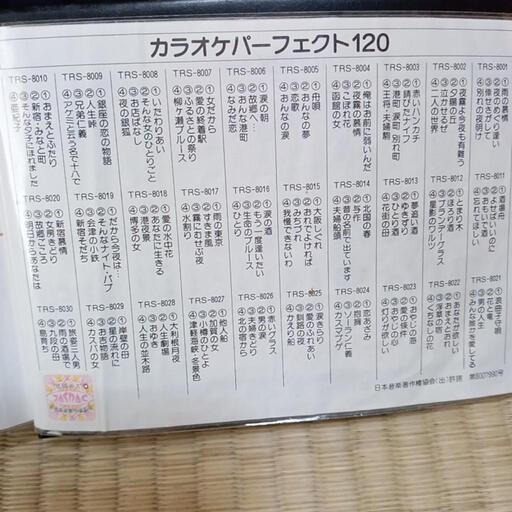 カラオケパーフェクト120
TRS-8001
①雨の慕情
②夜のめぐり逢い
③倖せさがして
④別れの夜明け
TRS-8002
①夜霧よ今夜も有難う
②夕陽の丘
③泣かせるぜ
④二人の世界
TRS-8003
①赤いハンカチ
②錆びたナイフ
③港町 涙町 別れ町
④王将・夫婦駒
TRS-8004
①俺はお前に弱いんだ
②夜霧の慕情
③こぼれ花
④函館の女
TRS-8005
①舟唄
②おんなの夢
③恋歌
④おんなの涙
TRS-8006
①涙の朝
②故郷へ…
③おんな港町
④なみだ恋
TRS-8007
①女だから
②愛の終着駅
③ふるさとの祭り
④柳ヶ瀬ブルース
TRS-8008
①いたわりあい
②そんな女のひとりごと
③お店ばなし
④夜の銀狐
TRS-8009
①銀座の恋の物語
②人生峠
③兄弟仁義
④アケミと云う名で十八で
TRS-8010
①おまえとふたり
②新宿・みなと町
③そんな夕子にほれました
④亜紀子
TRS-8011
①酒場舟
②よせばいいのに
③おもいで酒
④忘れてほしい
TRS-8012
①とまり木
③ブランデーグラス
④星影のワルツ
TRS-8013
①夢追い酒
②ゆきずり
④花街の母
TRS-8014
①北国の春
②与作
③昔の名前で出ています
④夫婦船頭
TRS-8015
①大阪しぐれ
②おれでよければ
③みちづれ
④我慢できないわ
TRS-8016
①涙の酒
②もう一度逢いたい
③生命のブルース
④ひとり
TRS-8017
①雨の東京
②すきま風
③霧にむせぶ夜
④博多の女
TRS-8018
①愛の水中花
②あなたに生きる
③港夜景
④水割り
TRS-8019
①だから今夜は…
②そんなナイト・パブ
③会津の小鉄
④新宿そだち
TRS-8020
①新宿慕情
②女房きどり
③故郷ごころ
④明日からあなたは
TRS-8021
①浪曲子守唄
②花と竜
③男の人生
④みんな誰かを愛してる
TRS-8022
①あなたが欲しい
②おまえとおれ
③浮草の宿
④くちなしの花
TRS-8023
①おやじの海
②愛の条件
③おやじの心
④灯りが欲しい
TRS-8024
①恋あざみ
②抱擁
③ソーラン仁義
④カスマプゲ
TRS-8025
①涙きらり
②愛のふれあい
③釧路の夜
④かえり船
TRS-8026
①赤いグラス
②男の涙
③夫婦きどり
④北の宿から
TRS-8027
①他人船
②加賀の女
③小樽のひとよ
④津軽海峡・冬景色
TRS-8028
①大利根月夜
②人生劇場
③おゆき
④人生の並木路
TRS-8029
①岸壁の母
②星の流れに
③お吉物語
④カスバの女
TRS-8030
①旅姿三人男
②雨の酒場で
③九段の母
④島育ち
日本音楽著作権協会(出)許諾 第8007990号
JASRAC